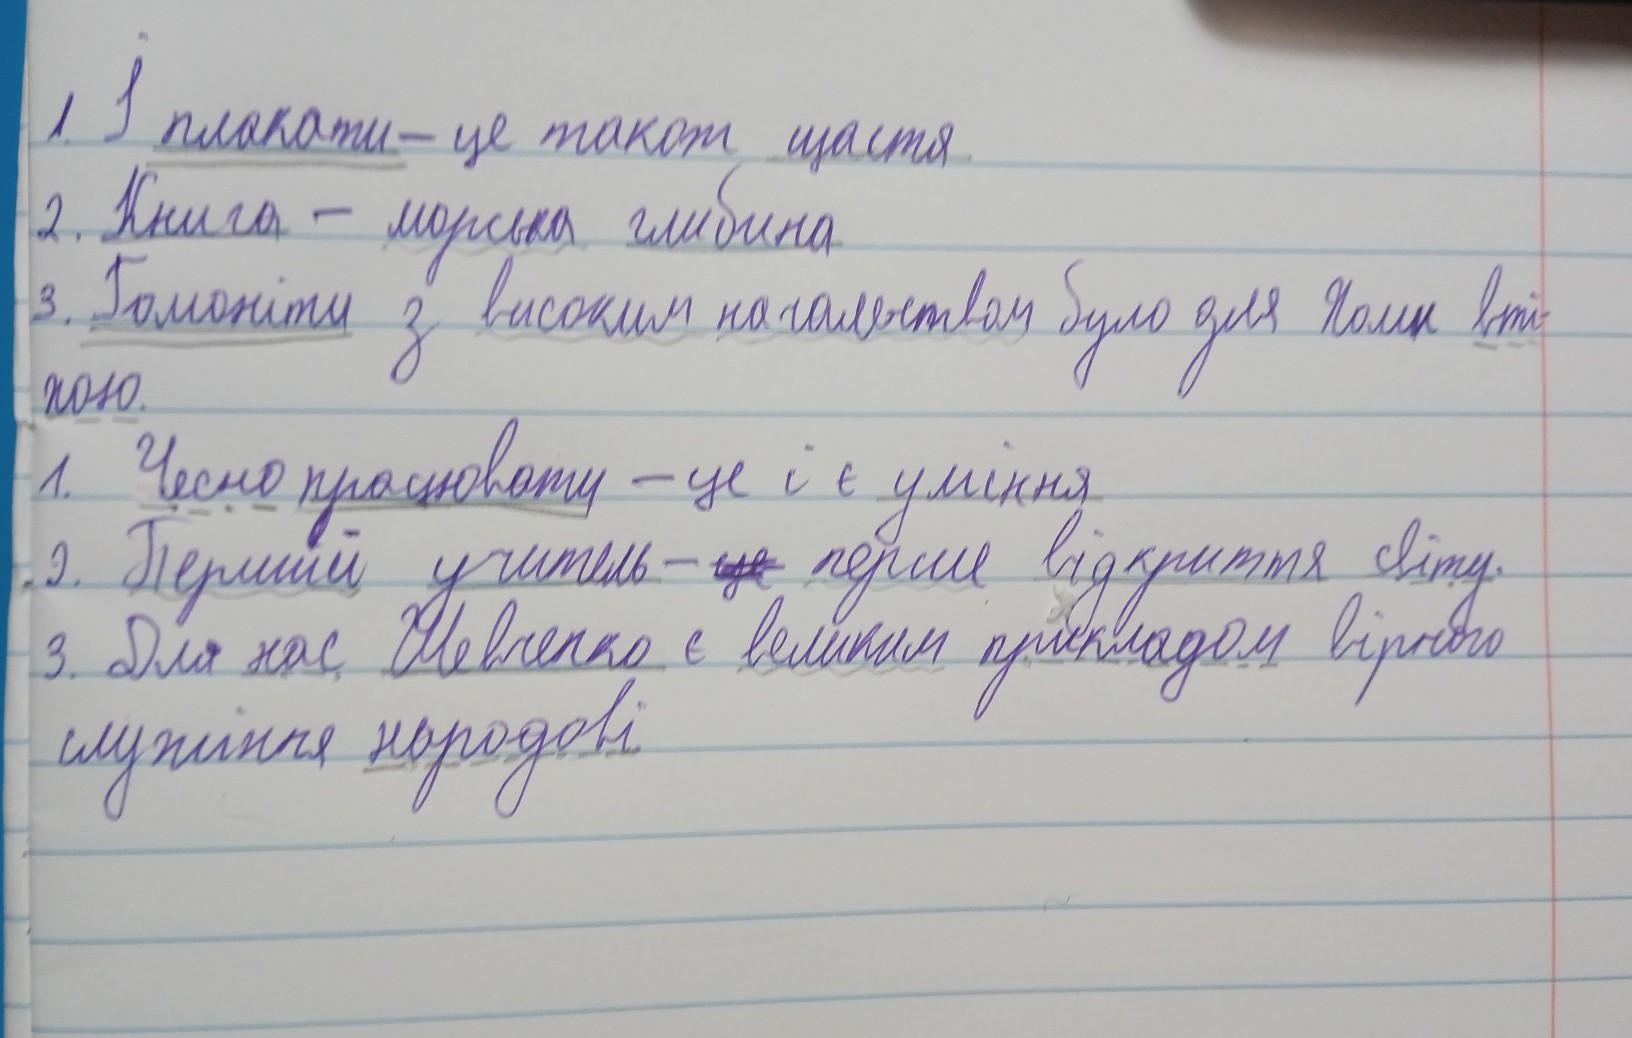 1. І плакати – це також щастя
2. Книга – морська глибина
3. Гомоніти з високим начальством було для Хоми вті-
хою.
1. Чесно працювати – це і є уміння
2. Перший учитель – перше відкриття світу.
3. Для нас Шевченко є великим прикладом вірного
служіння народові